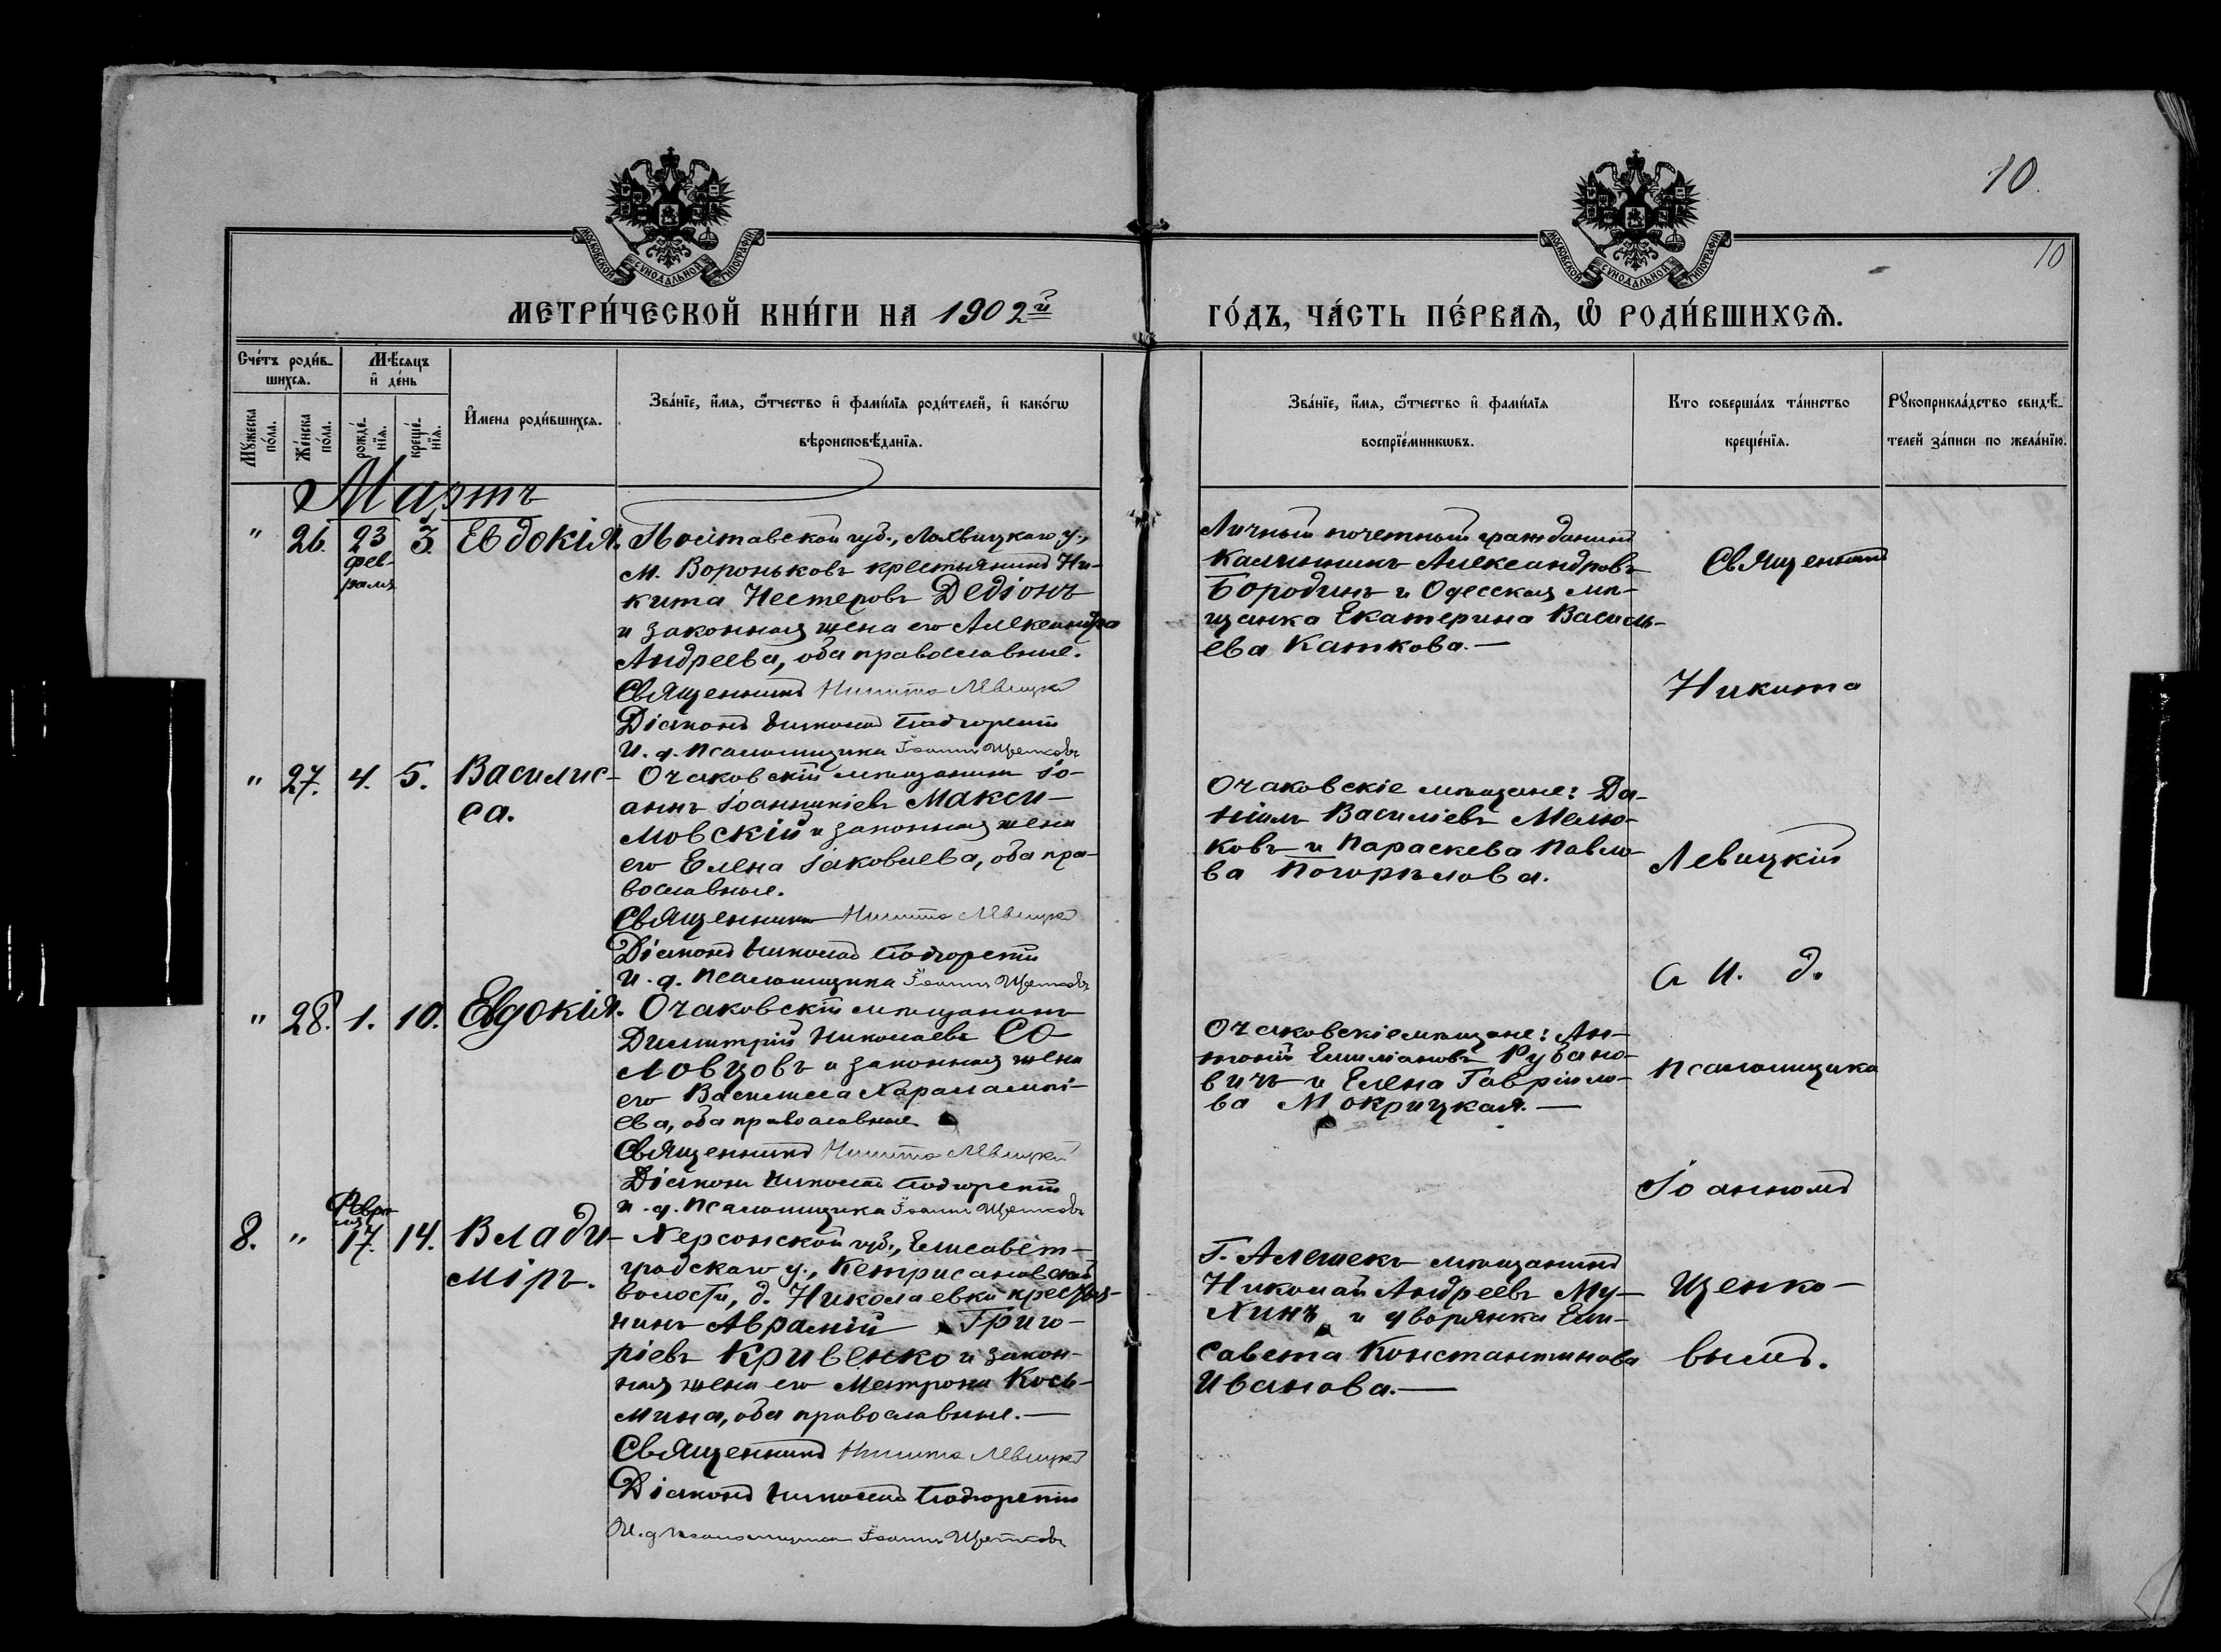 10.
10
МОСКОВСКОЙ СѴНОДАЛЬНОЙ ТИПОГРАФІИ
МОСКОВСКОЙ СѴНОДАЛЬНОЙ ТИПОГРАФІИ
МЕТРИ́ЧЕСКОЙ КНИ́ГИ НА 1902й
ГО́ДЪ, ЧА́СТЬ ПЕ́РВАѦ, Ѿ РОДИ́ВШИХСѦ.
Сче́тъ роди́в-
шихсѧ.
Мѣ́сѧцъ
и҆ де́нь
Мꙋ́жеска по́ла.
Же́нска по́ла.
рожде́-нїѧ.
креще́-нїѧ.
И҆мена роди́вшихсѧ.
Зва́нїе, и҆́мѧ, ѻ҆́тчество и҆ фамѝлїѧ роди́телей, и҆ како́гѡ
вѣроисповѣ́данїѧ.
Зва́нїе, и҆́мѧ, ѻ҆́тчество и҆ фамѝлїѧ
воспрїе́мникѡвъ.
Кто соверша́лъ та́инство
креще́нїѧ.
Рꙋкоприкла́дство свидѣ́-
телей за́писи по жела́нїю.
Мартъ
" 26. 23 фев-раля 3. Евдокія.
Полтавской губ., Лохвицкаго у.,
м. Вороньковъ крестьянинъ Ни-
кита Нестеровъ Дедіонъ
и законная жена его Александра
Андреева, оба православные.
Священникъ Никита Левицкій
Діаконъ Николай Подгорецкій
И. д. псаломщика Іоаннъ Щенковъ
Личный почетный гражданинъ
Калинникъ Александровъ
Бородинъ и Одесская мѣ-
щанка Екатерина Василь-
ева Каткова.—
" 27. 4. 5. Василис-
са.
Очаковскій мѣщанинъ Іо-
аннъ Іоанникіевъ Макси-
мовскій и законная жена
его Елена Іаковлева, оба пра-
вославные.
Священникъ Никита Левицкій
Діаконъ Николай Подгорецкій
И. д. псаломщика Іоаннъ Щенковъ
Очаковскіе мѣщане: Да-
ніилъ Василіевъ Малю-
ковъ и Параскева Павло-
ва Погорѣлова.
" 28. 1. 10. Евдокія.
Очаковскій мѣщанинъ
Димитрій Николаевъ Со-
ловцовъ и законная жена
его Василисса Харалампі-
ева, оба православные
Священникъ Никита Левицкій
Діаконъ Николай Подгорецкій
и. д. псаломщика Іоаннъ Щенковъ
Очаковскіе мѣщане: Ан-
тоній Емиліановъ Рубано-
вичъ и Елена Гавріило-
ва Мокрицкая.—
8. " Февра-ля 17. 14. Влади-
міръ.
Херсонской губ., Елисавет-
градскаго у., Кетрисановской
волости, д. Николаевки крестья-
нинъ Аврамій Григо-
ріевъ Кривенко и закон-
ная жена его Матрона Кось-
мина, оба православные.—
Священникъ Никита Левицкій
Діаконъ Николай Подгорецкій
И. д. псаломщика Іоаннъ Щенковъ
Г. Алешекъ мѣщанинъ
Николай Андреевъ Му-
хинъ и дворянка Ели-
савета Константинова
Иванова.—
Священникъ
Никита
Левицкій
с и. д.
псаломщика
Іоанномъ
Щенко-
вымъ.